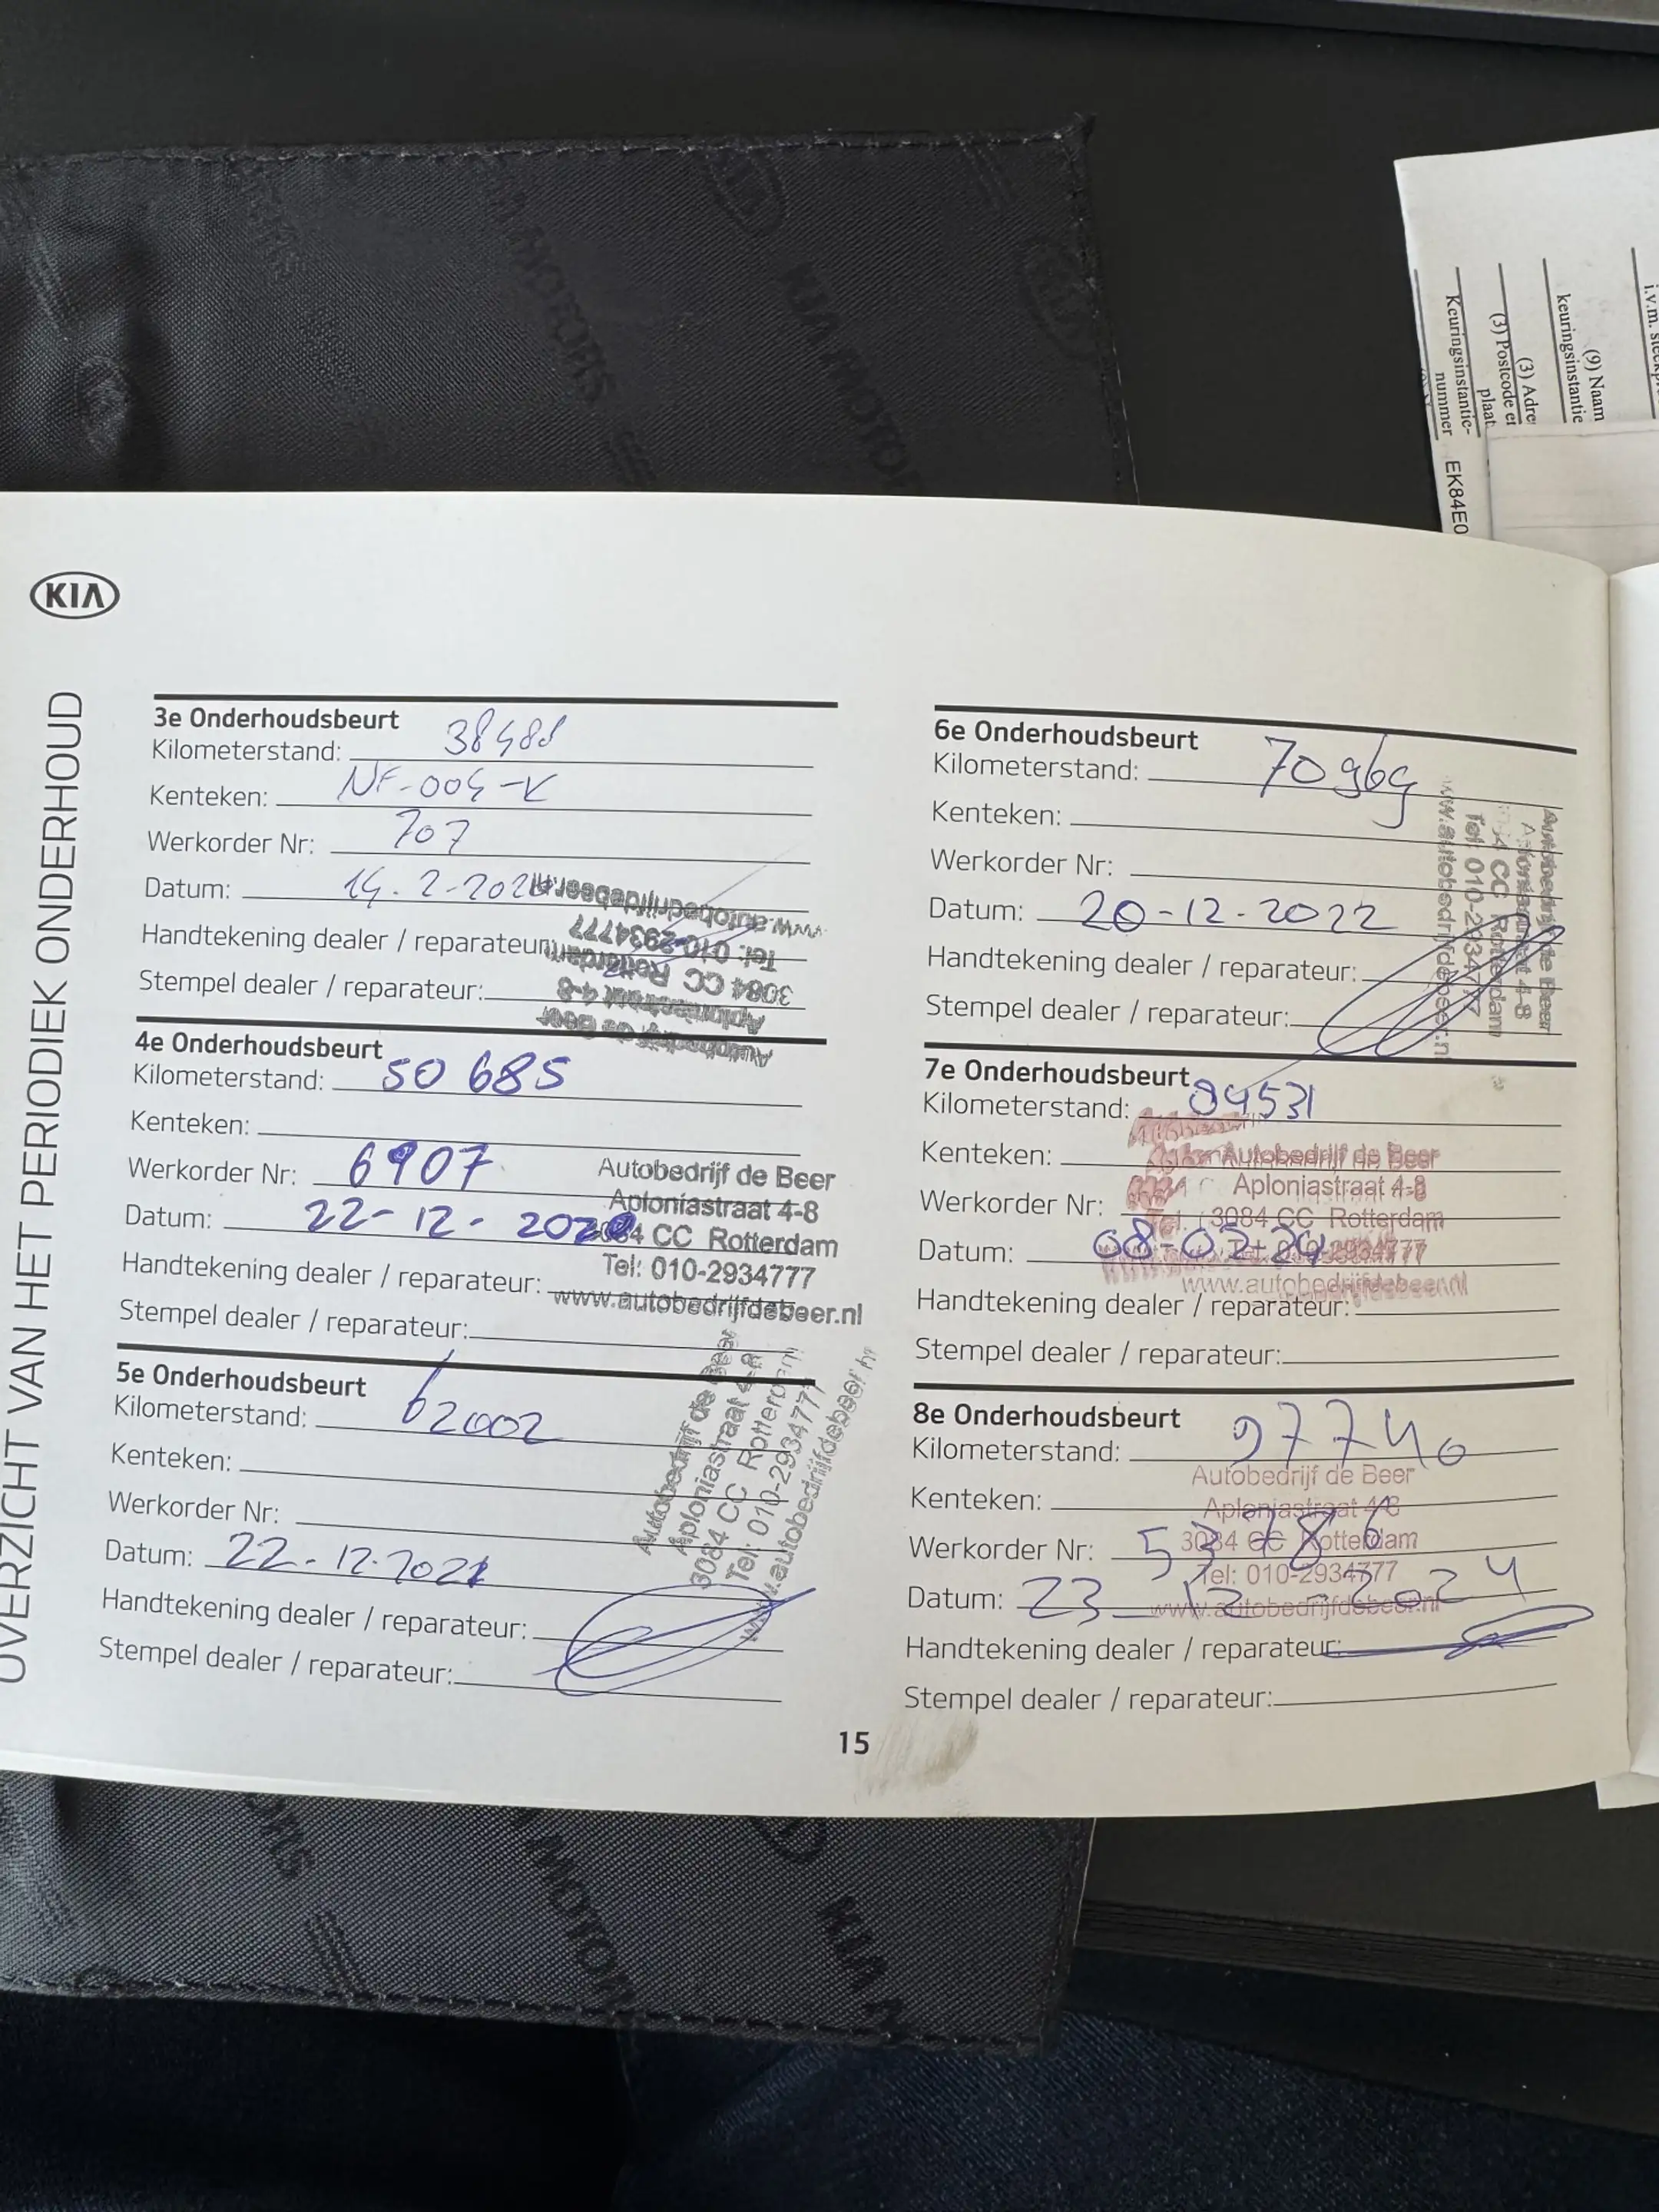 KIA
OVERZICHT VAN HET PERIODIEK ONDERHOUD
3e Onderhoudsbeurt
Kilometerstand: 38488
Kenteken: NF-004-K
Werkorder Nr: 707
Datum: 14.2-202
Handtekening dealer / reparateur:
Stempel dealer / reparateur:
Autobedrijf de Beer
Aploniastraat 4-8
3084 CC Rotterdam
Tel: 010-2934777
www.autobedrijfdebeer.nl
4e Onderhoudsbeurt
Kilometerstand: 50 685
Kenteken:
Werkorder Nr: 6907
Datum: 22-12-2020
Handtekening dealer / reparateur:
Stempel dealer / reparateur:
Autobedrijf de Beer
Aploniastraat 4-8
3084 CC Rotterdam
Tel: 010-2934777
www.autobedrijfdebeer.nl
5e Onderhoudsbeurt
Kilometerstand: 62002
Kenteken:
Werkorder Nr:
Datum: 22-12-2021
Handtekening dealer / reparateur:
Stempel dealer / reparateur:
Autobedrijf de Beer
Aploniastraat 4-8
3084 CC Rotterdam
Tel: 010-2934777
www.autobedrijfdebeer.nl
6e Onderhoudsbeurt
Kilometerstand: 70969
Kenteken:
Werkorder Nr:
Datum: 20-12-2022
Handtekening dealer / reparateur:
Stempel dealer / reparateur:
Autobedrijf de Beer
Aploniastraat 4-8
3084 CC Rotterdam
Tel: 010-2934777
www.autobedrijfdebeer.nl
7e Onderhoudsbeurt
Kilometerstand: 84531
Kenteken:
Werkorder Nr:
Datum: 08-02-24
Handtekening dealer / reparateur:
Stempel dealer / reparateur:
Autobedrijf de Beer
Aploniastraat 4-8
3084 CC Rotterdam
Tel: 010-2934777
www.autobedrijfdebeer.nl
8e Onderhoudsbeurt
Kilometerstand: 97740
Kenteken:
Werkorder Nr: 53786
Datum: 23-12-2024
Handtekening dealer / reparateur:
Stempel dealer / reparateur:
Autobedrijf de Beer
Aploniastraat 4-8
3084 CC Rotterdam
Tel: 010-2934777
www.autobedrijfdebeer.nl
15
(9) Naam
keuringsinstantie
(3) Adre
(3) Postcode en
plaat
Keuringsinstantie-
nummer EK84E0
KIA MOTORS
KIA MOTO